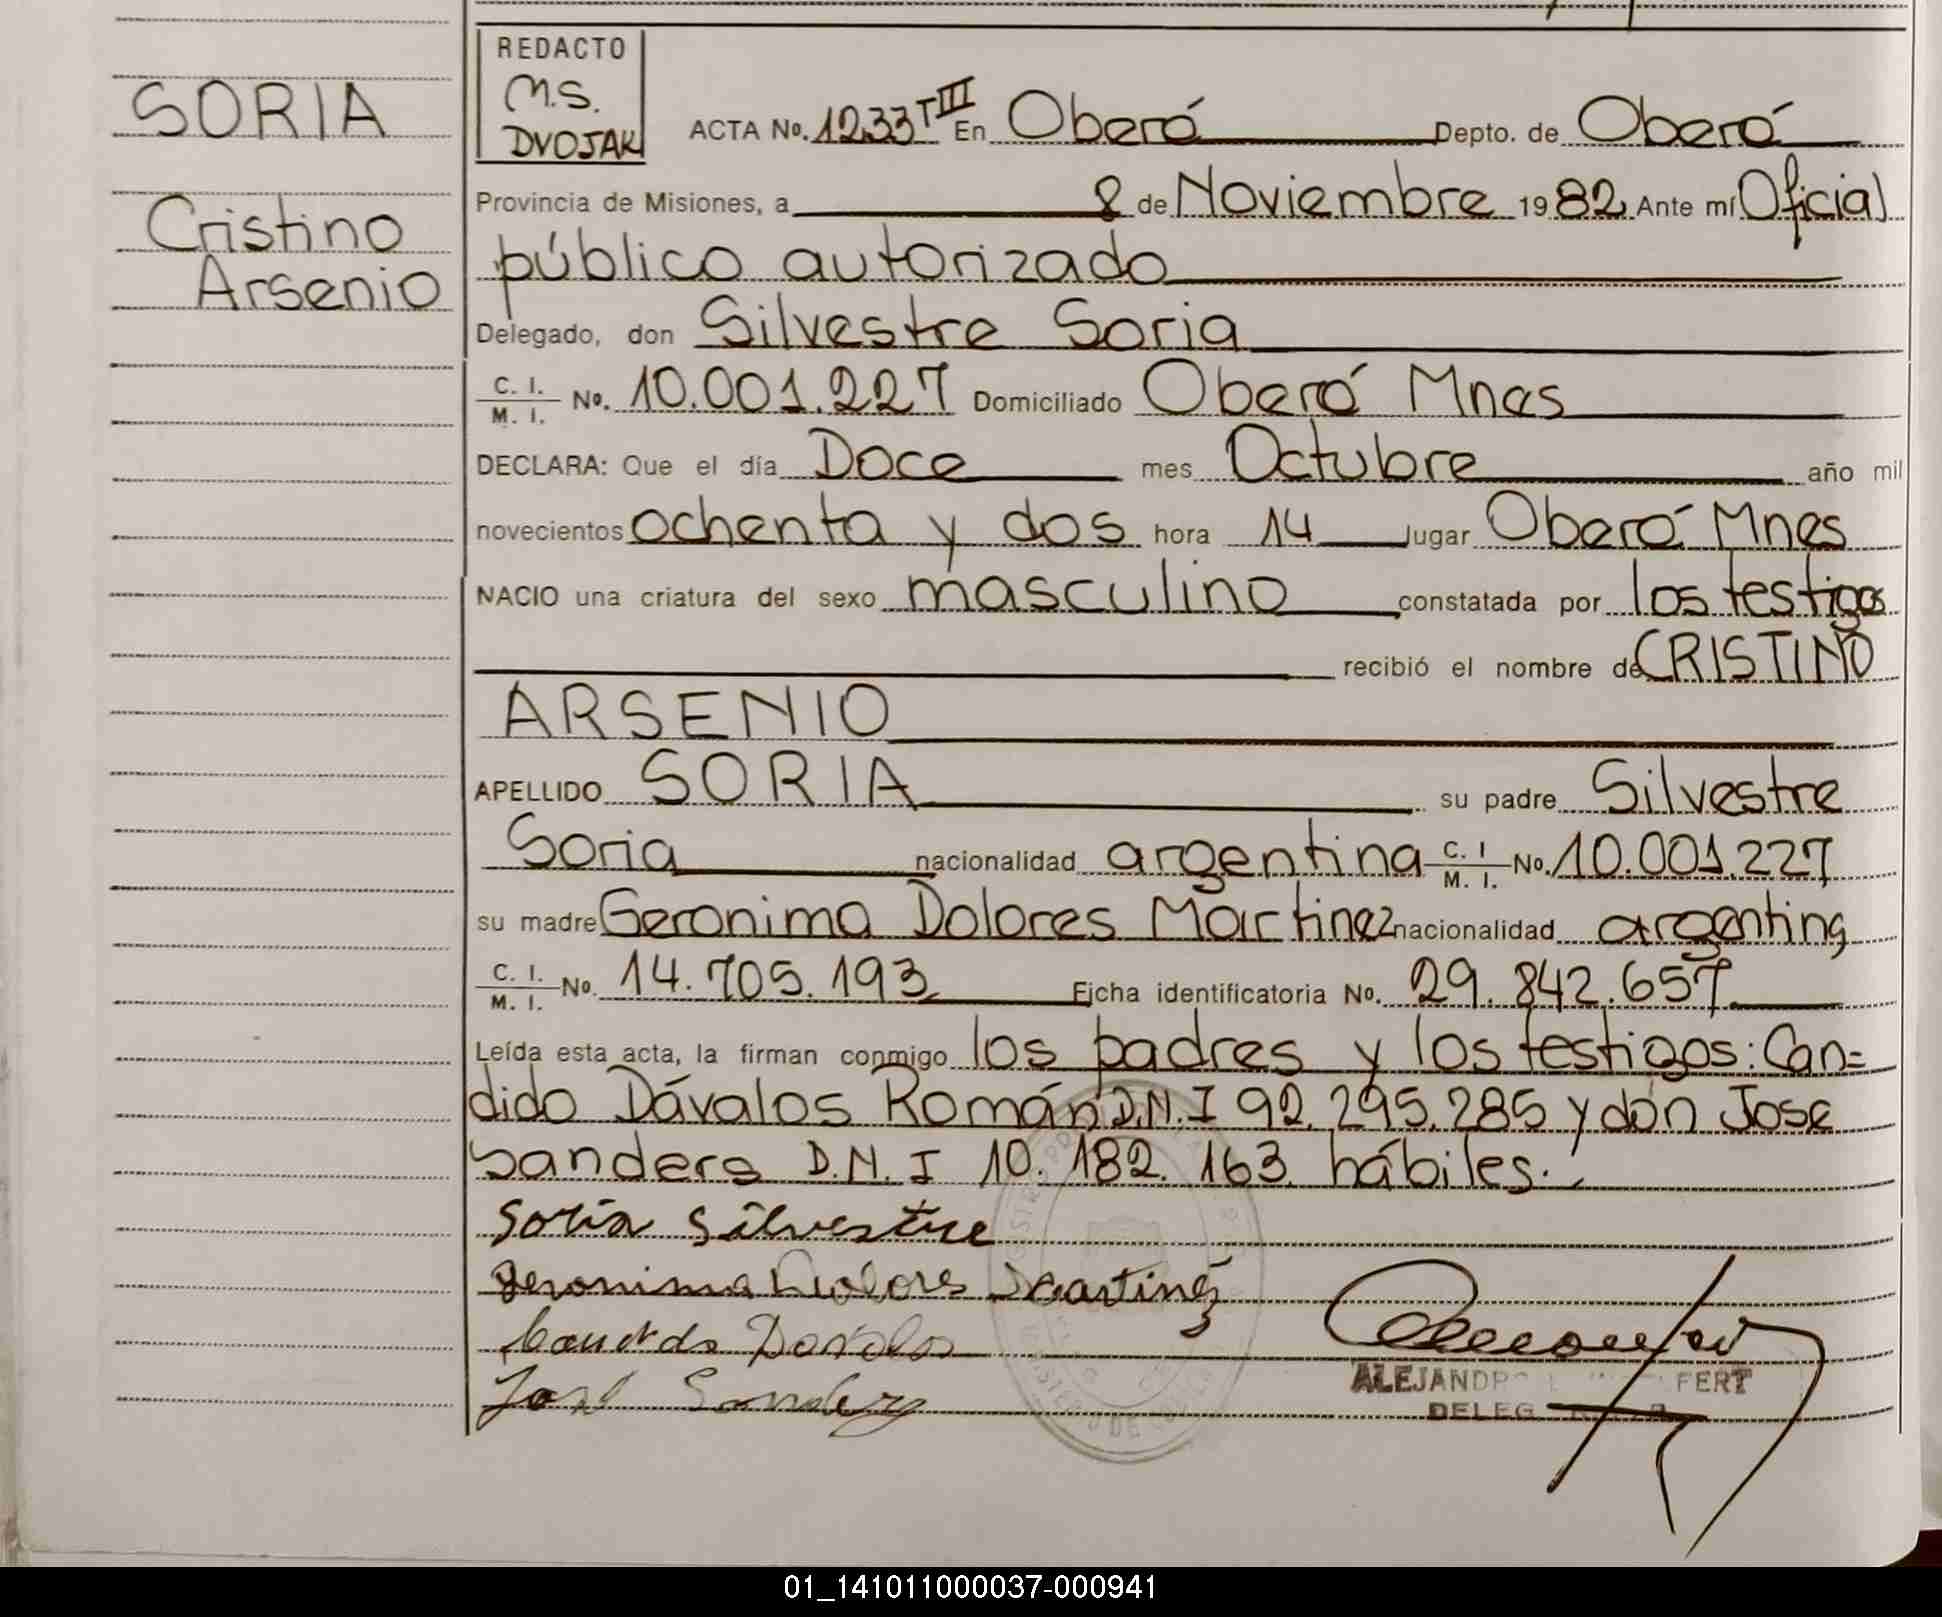 SORIA
Cristino
Arsenio
REDACTO
M.S.
DVOJAK
ACTA No. 1233 TIII En Oberá Depto. de Oberá
Provincia de Misiones, a 8 de Noviembre 1982 Ante mí Oficial
público autorizado
Delegado, don Silvestre Soria
C. I. M. I. No. 10.001.227 Domiciliado Oberá Mnes
DECLARA: Que el día Doce mes Octubre año mil
novecientos ochenta y dos hora 14 lugar Oberá Mnes
NACIO una criatura del sexo masculino constatada por los testigos
recibió el nombre de CRISTINO
ARSENIO
APELLIDO SORIA su padre Silvestre
Soria nacionalidad argentina C. I M. I. No. 10.001.227
su madre Geronima Dolores Martinez nacionalidad argentina
C. I. M. I. No. 14.705.193 Ficha identificatoria No. 29.842.657
Leída esta acta, la firman conmigo los padres y los testigos: Can=
dido Dávalos Román D.N.I 92.295.285 y don Jose
Sanders D.N.I 10.182.163 hábiles.
Soria Silvestre
Geronima Dolores Martinez
Davalos
José
ALEJANDR FERT
DELEG
01_141011000037-000941